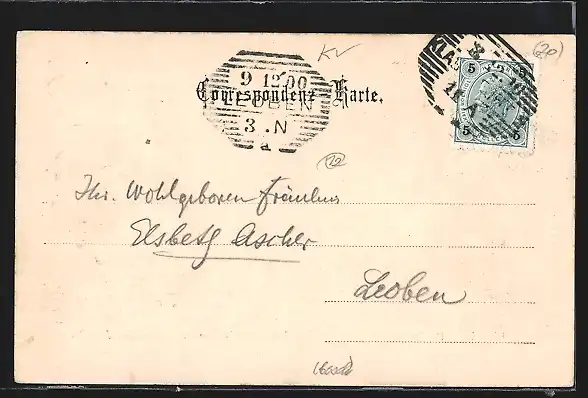 KV
(20)
9 12 00
LEOBEN
3.N
a
Correspondenz-Karte.
5 5
5 5
20
Ihr. Wohlgeboren Fräulein
Elsbeth Ascher
Leoben